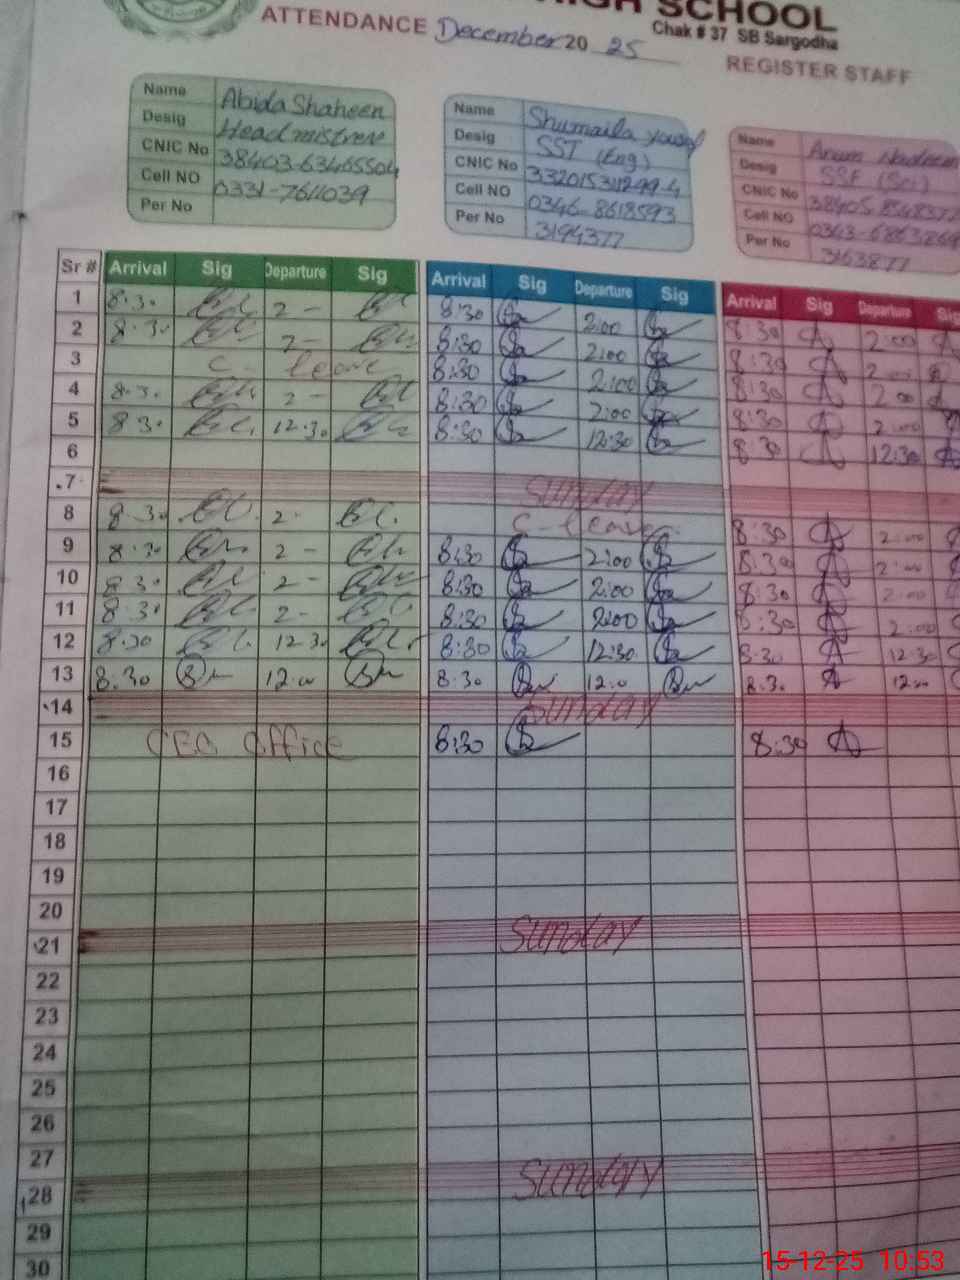 HIGH SCHOOL
Chak # 37 SB Sargodha
ATTENDANCE December 20 25
REGISTER STAFF
Name Abida Shaheen
Desig Headmistress
CNIC No
Cell NO 0331-7611039
Per No
Name Shumaila yousaf
Desig SST (Eng)
CNIC No
Cell NO 0346-8618593
Per No 3194377
Name Anum
Desig
CNIC No
Cell NO
Per No 3163877
Sr # Arrival Sig Departure Sig Arrival Sig Departure Sig Arrival Sig Departure Sig
1 8.30 2 - 8:30 2:00 8:30 2:00
2 8.30 2 - 8:30 2:00 8:30 2
3 C - leave 8:30 2:00 8:30 2:00
4 8.30 2 - 8:30 2:00 8:30 2:00
5 8 30 12.30 8:30 12:30 8:30 12:30
6
7 SUNDAY
8 8.30 2 - C - leave 8:30 2:00
9 8.30 2 - 8:30 2:00 8:30 2:00
10 8.30 2 - 8:30 2:00 8:30 2:00
11 8.30 2 - 8:30 2:00 8:30 2:00
12 8.30 12.30 8:30 12:30 8:30 12:30
13 8.30 12.00 8.30 12.0 8.30 12.00
14 Sunday
15 CEO Office 8:30 8:30
16
17
18
19
20
21 Sunday
22
23
24
25
26
27
28 SUNDAY
29
30
15-12-25 10:53